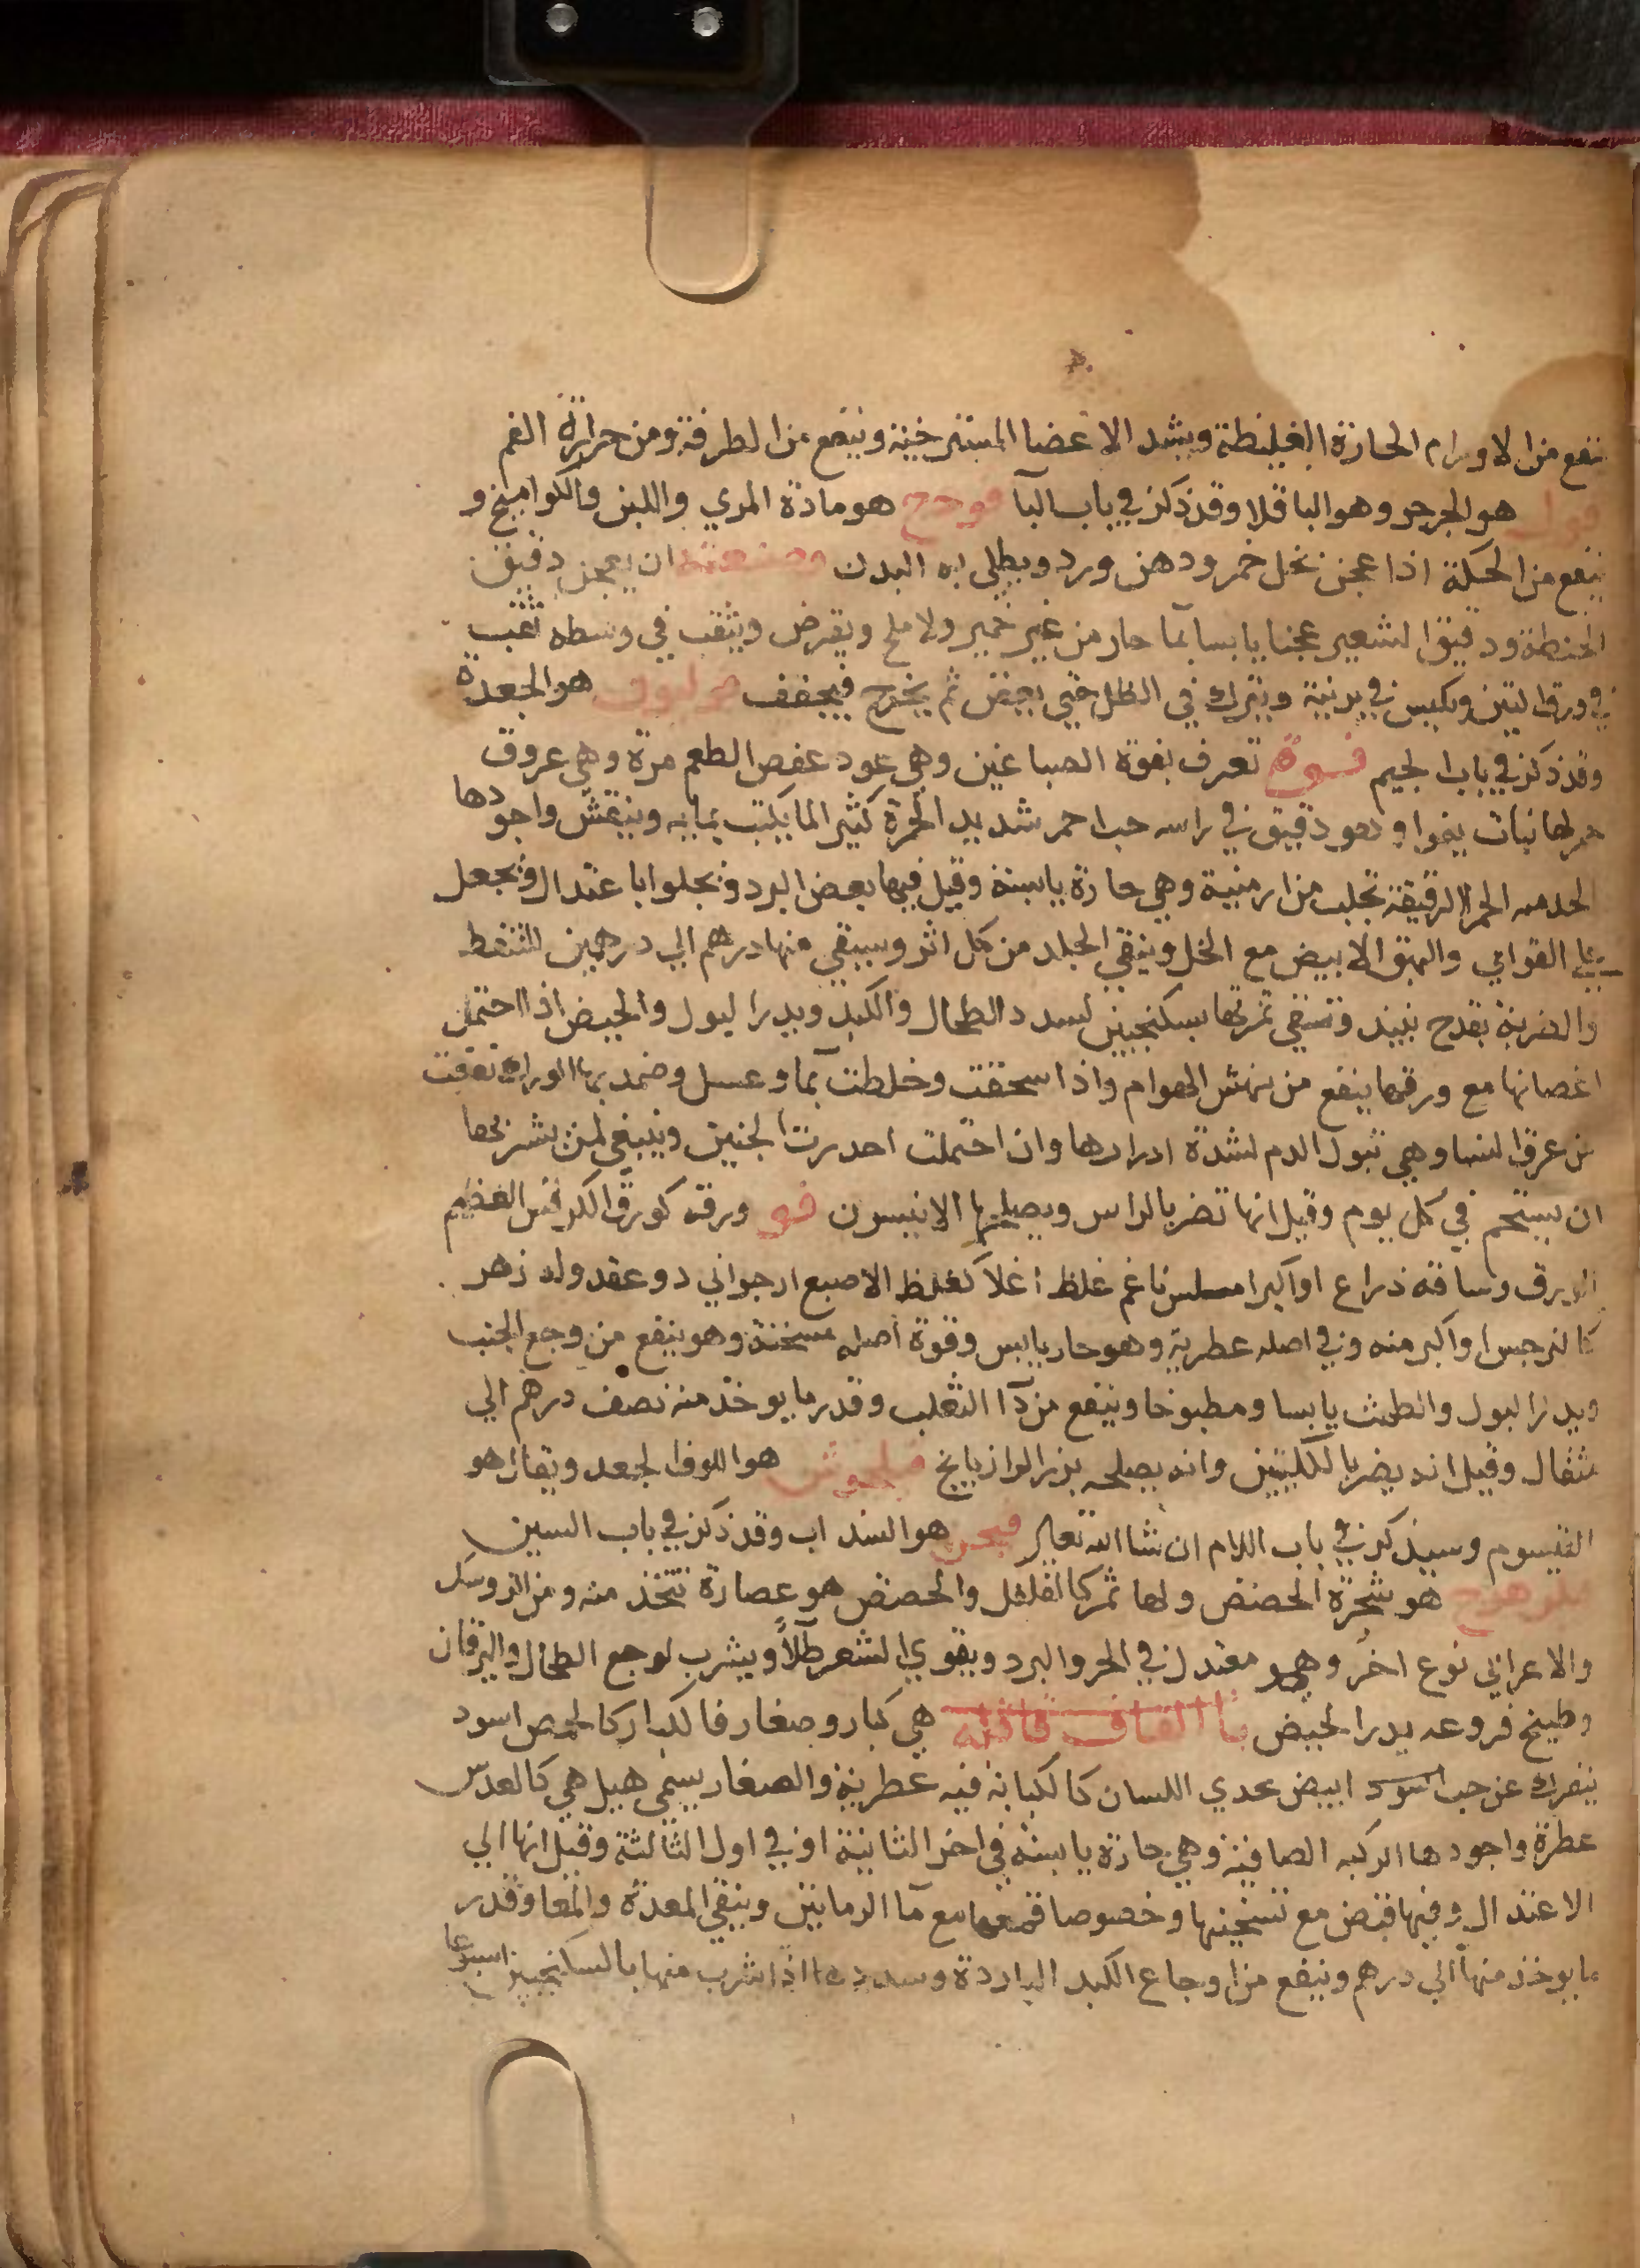 ينفع من الاورام الحارة الغليظة ويشد الاعضا المسترخية وينفع من الطرفة ومن حرارة الفم
فول هو الجرجر وهو الباقلا وقد ذكر في باب البا فودج هو مادة المري واللبن والكوامخ و
ينفع من الحكة اذا عجن بخل خمر ودهن ورد ويطلى به البدن وصنعته ان يعجن دقيق
الحنطة ودقيق الشعير عجنا يابسا بما حار من غير خمير ولا ملح ويقرض ويثقب في وسطه ثقب
في ورق التين ويكبس في برنية ويترك في الظل حتى يعفن ثم يخرج فيجفف هو الجعدة
وقد ذكر في باب الجيم فوة تعرف بفوة الصباغين وهي عود عفص الطعم مرة وهي عروق
حمر لها نبات وهو دقيق في راسه حب احمر شديد الحمرة كثير الما يكتب بمايه وينقش واجودها
الحمر الرقيقة تجلب من ارمنية وهي حارة يابسة وقيل فيها بعض البرد وتجلوا باعتدال وتجعل
على القوابي والبهق الابيض مع الخل وينقي الجلد من كل اثر وسيقي منها درهم الي درهمين للسقطه
والضربة بقدح نبيذ وتسقي ثمرتها بسكنجبين لسدد الطحال والكبد ويدر البول والحيض اذا احتمل
اغصانها مع ورقها ينفع من نهش الهوام واذا سحقت وخلطت بما وعسل وضمد بها الوراك نفعت
من عرق النسا وهي تبول الدم لشدة ادرارها وان احتملت احدرت الجنين وينبغي لمن يشربها
ان يستحم في كل يوم وقيل انها تضر بالراس ويصلحها الانيسون فو ورقه كورق الكرفس العظيم
الورق وساقه ذراع او اكبر املس ناعم غلظ اغلا كغلظ الاصبع ارجواني ذو عقد وله زهر
كالنرجس او اكبر منه وفي اصله عطرية وهو حار يابس وقوة اصله مسخنة وهو ينفع من وجع الجنب
ويدر البول والطمث يابسا ومطبوخا وينفع من دا الثعلب وقدر ما يوخذ منه نصف درهم الي
مثقال وقيل انه يضر بالكليتين وانه يصلحه بزر الرازيانج هو اللوف الجعد ويقال هو
القيسوم وسيذكر في باب اللام ان شا الله تعالى فيجن هو السداب وقد ذكر في باب السين
فلزهرج هو شجرة الحضض ولها ثمر كالفلفل والحضض هو عصارة تتخذ منه ومن
والاعرابي نوع اخر وهو معتدل في الحر والبرد ويقوي الشعر طلاً ويشرب لوجع الطحال واليرقان
وطبيخ فروعه يدر الحيض باب القاف قاقله هي كبار وصغار فالكبار كالحمص اسود
يتفرك عن حب اسود ابيض يحدي اللسان كالكبابة فيه عطرية والصغار يسمى هيل هي كالعدس
عطرة واجودها الصافية وهي حارة يابسة في اخر الثانية او في اول الثالثة وقيل انها الي
الاعتدال وفيها قبض مع تسخينها وخصوصا قمعها مع ما الرمانين وينقي المعدة والمعا وقدر
ما يوخذ منها الي درهم وينفع من اوجاع الكبد الباردة وسددها اذا شرب منها بالسكنجبين اسبوعا